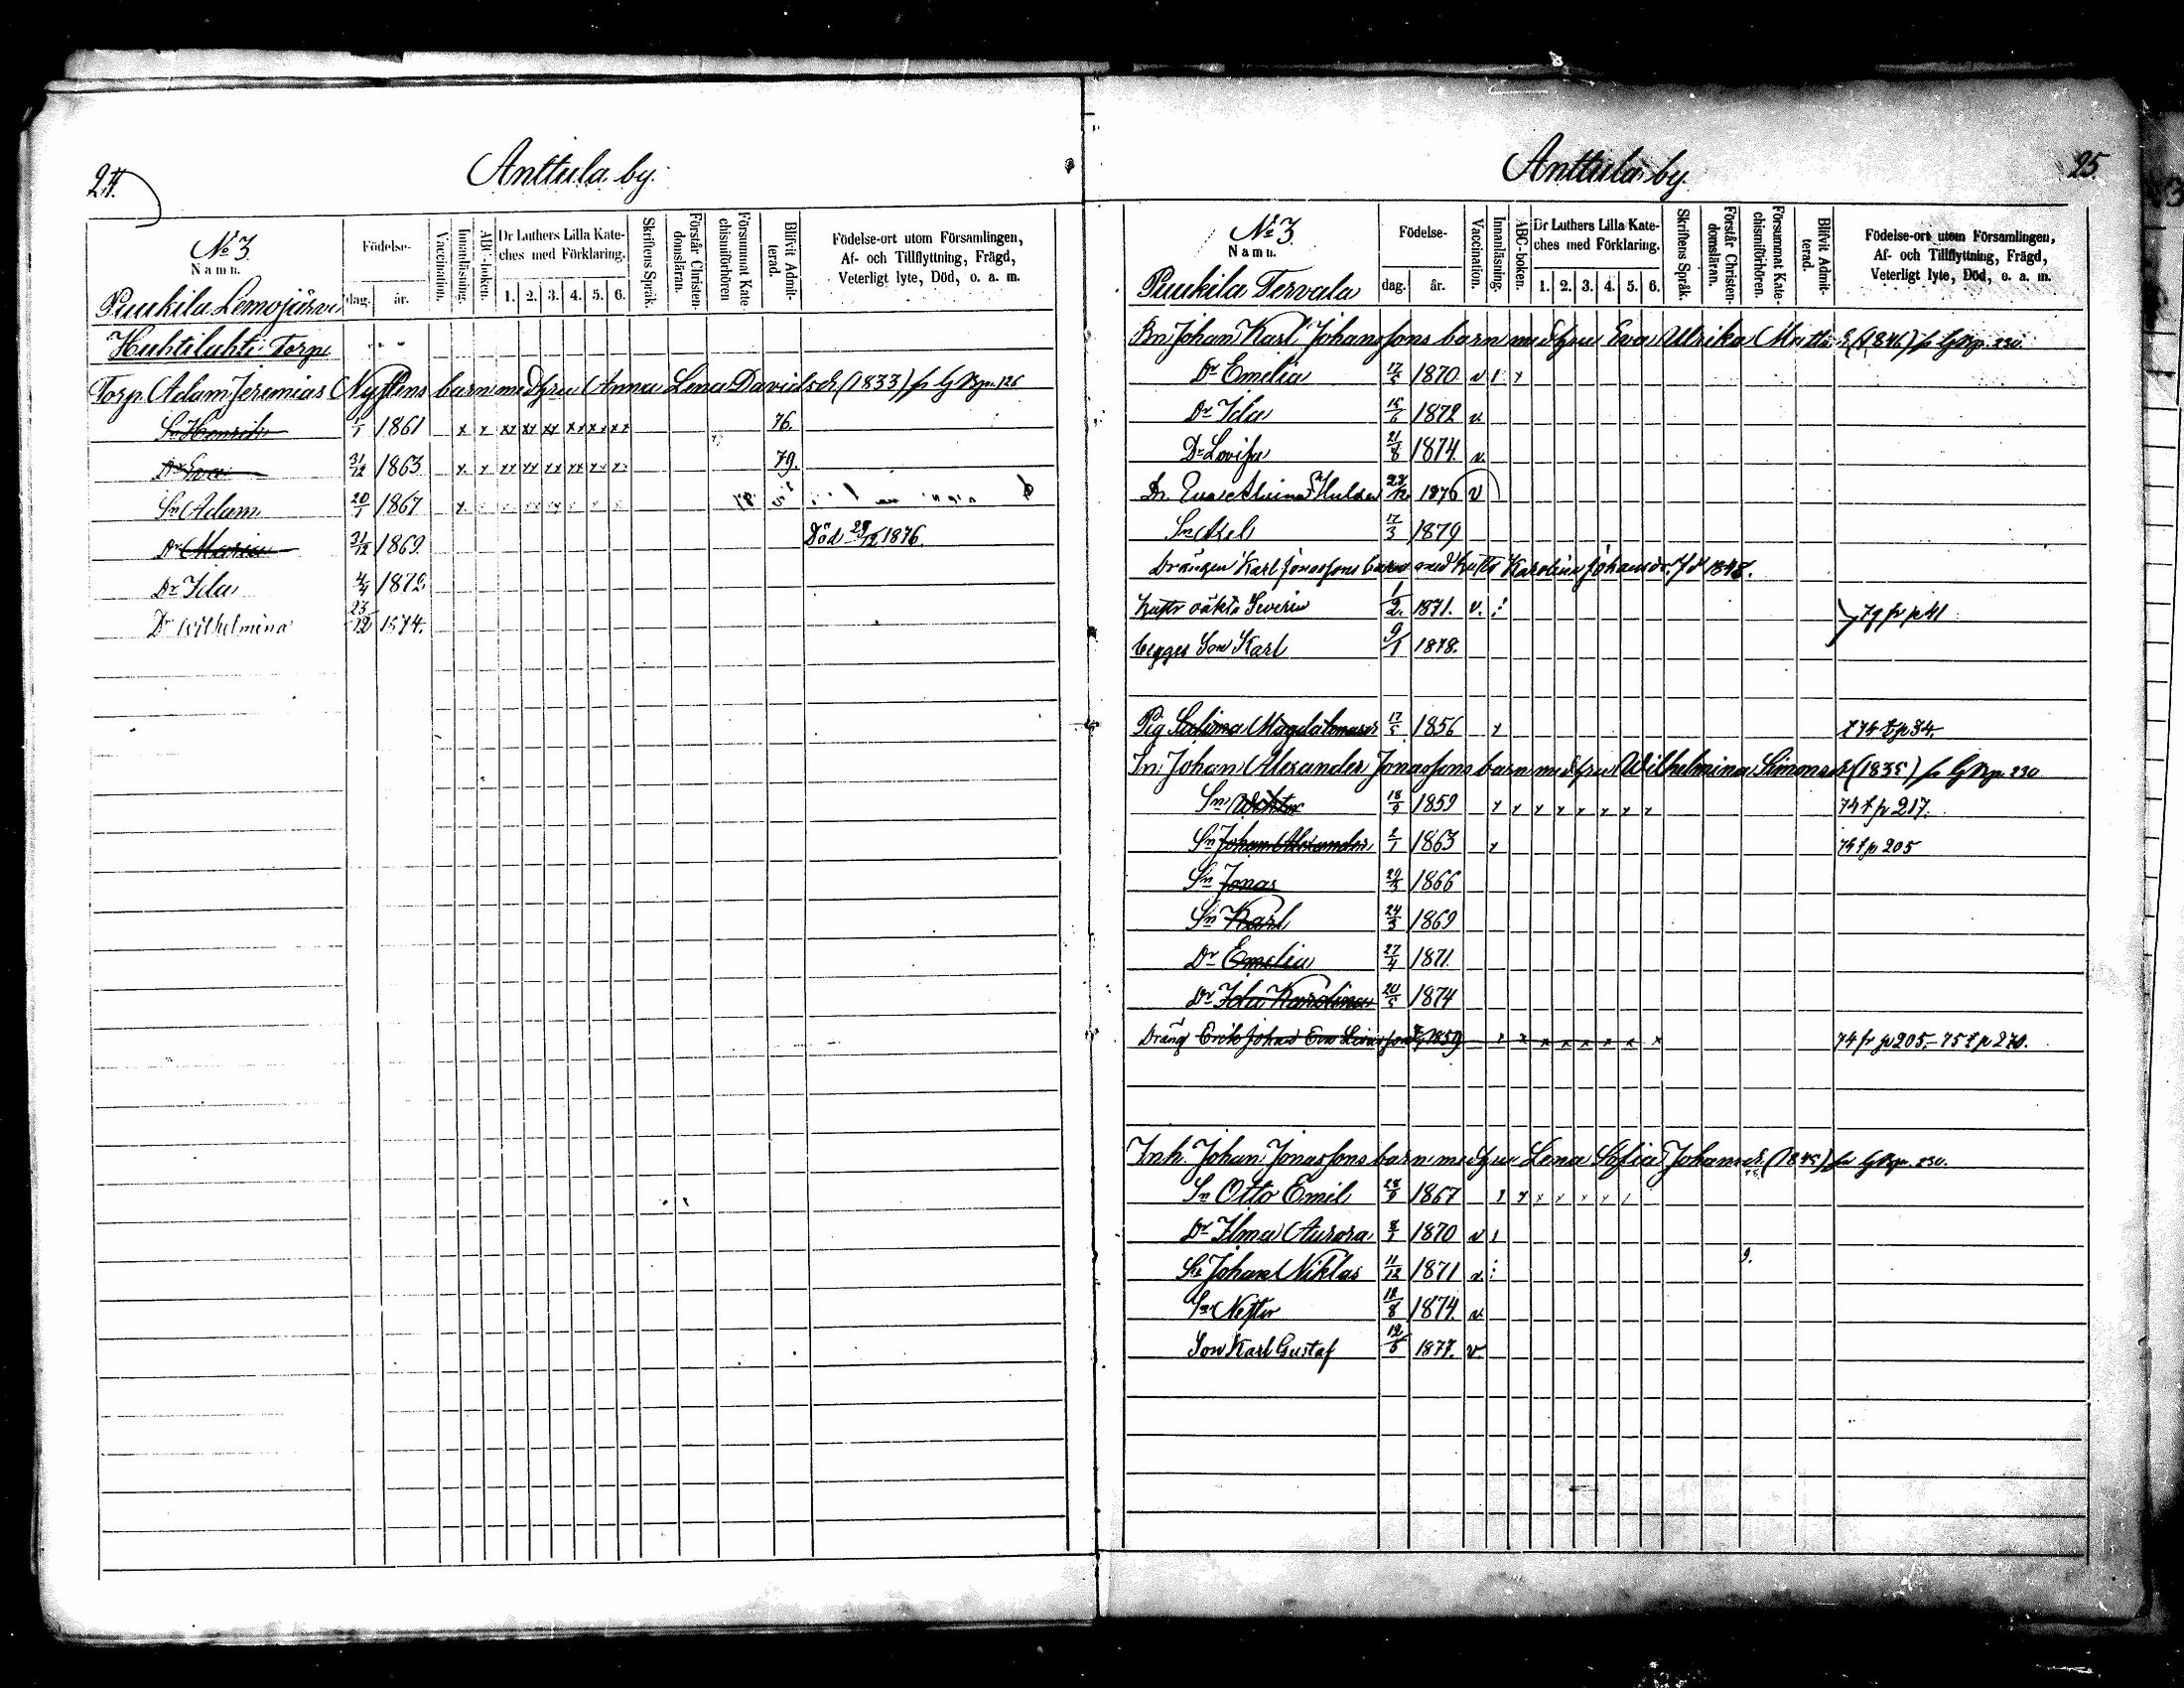 24.
Anttula by.
No 3.
Namn.
Födelse-
dag. år.
Vaccination.
Innanläsning.
ABC-boken.
Dr Luthers Lilla Kate-
ches med Förklaring.
1. 2. 3. 4. 5. 6.
Skriftens Språk.
Förstår Christen-
domsläran.
Försummat Kate-
chismiförhören
Blifvit Admit-
terad.
Födelse-ort utom Församlingen,
Af- och Tillflyttning, Frägd,
Veterligt lyte, Död, o. a. m.
Puukila Lemojärvi
Huhtilahti Torp
Torp. Adam Jeremias Nyströms barn med hru Anna Lena Davidsdr (1833) fr GBpn. 126
Sn Henrik 1861 x x xx xx xx xx xx xx 76.
Dr Eva 31/12 1863 x x xx xx xx xx x x 79.
Sn Adam 20/1 1867 x
Dr Maria 31/12 1869. Död 29/12 1876.
Dr Ida 4/4 1872.
Dr Wilhelmina 23/12 1874.
25.
Anttula by.
No 3.
Namn.
Födelse-
dag. år.
Vaccination.
Innanläsning.
ABC-boken.
Dr Luthers Lilla Kate-
ches med Förklaring.
1. 2. 3. 4. 5. 6.
Skriftens Språk.
Förstår Christen-
domsläran.
Försummat Kate-
chismiförhören.
Blifvit Admit-
terad.
Födelse-ort utom Församlingen,
Af- och Tillflyttning, Frägd,
Veterligt lyte, Död, o. a. m.
Puukila Tervala
Bn Johan Karl Johanssons barn med hru Eva Ulrika (1846) fr GBpn. 230
Dr Emelia 17/5 1870 v 1 x
Dr Ida 15/6 1872 v
Dr Lovisa 21/8 1874. v
Dr. Hulda 1876 v
Sn Axel 17/3 1879
Drängen Karl Jonassons barn med hustr Karolina Johansdr. f. 1848.
hustr oäkta Severin 1/2 1871. v.
begges Son Karl 9/1 1878.
79 fr p 41
Pig Salima Magdalenasdr 17/5 1856 x t 74 t p 34.
In. Johan Alexander Jonassons barn med hru Wilhelmina Simonsdr (1835) fr GBpn. 230
Sn Wiktor 18/9 1859 x x x x x x x x 74 t p 217.
Sn Johan Alexander 2/1 1863 x 74 t p 205
Sn Jonas 29/3 1866
Sn Karl 24/3 1869
Dr Emelia 27/4 1871.
Dr Ida Karolina 20/5 1874
Dräng Erik Johan 1859 x x x x x x x x 74 fr p 205.- 75 t p 270.
Inh. Johan Jonassons barn med hru Lena Sofia Johansdr. (1845) fr GBpn. 230.
Sn Otto Emil 28/9 1867 x x x x x x
Dr Ilma Aurora 8/1 1870 v 1
Sn Johan Niklas 11/12 1871 v 9.
Sn Nestor 18/8 1874. v
Son Karl Gustaf 12/5 1877. v.